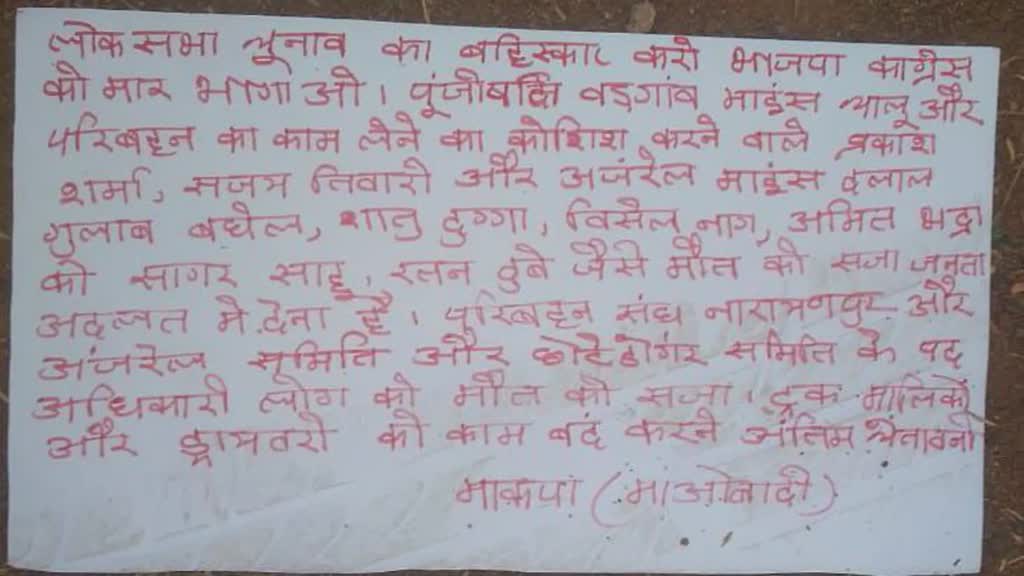 लोक सभा चुनाव का बहिस्कार करो भाजपा काग्रेस
को मार भागाओ। पूंजीपति वडगांव माइंस चालू और
परिबहन का काम लेने का कोशिश करने वाले प्रकाश
शर्मा, संजय तिवारी और अजंरेल माइंस दलाल
गुलाब बघेल, शानु दुग्गा, विसेल नाग, अमित भद्रा
को सागर साहू, रतन दुबे जैसे मौत की सजा जनता
अदलत मे देना है। परिबहन संघ नारायणपुर और
अंजरेल समिति और छोटेडोंगर समिति के पद
अधिकारी लोग को मौत की सजा। ट्रक मालिकों
और ड्रायवरो को काम बंद करने अंतिम चेतावनी
माकपा (माओवादी)